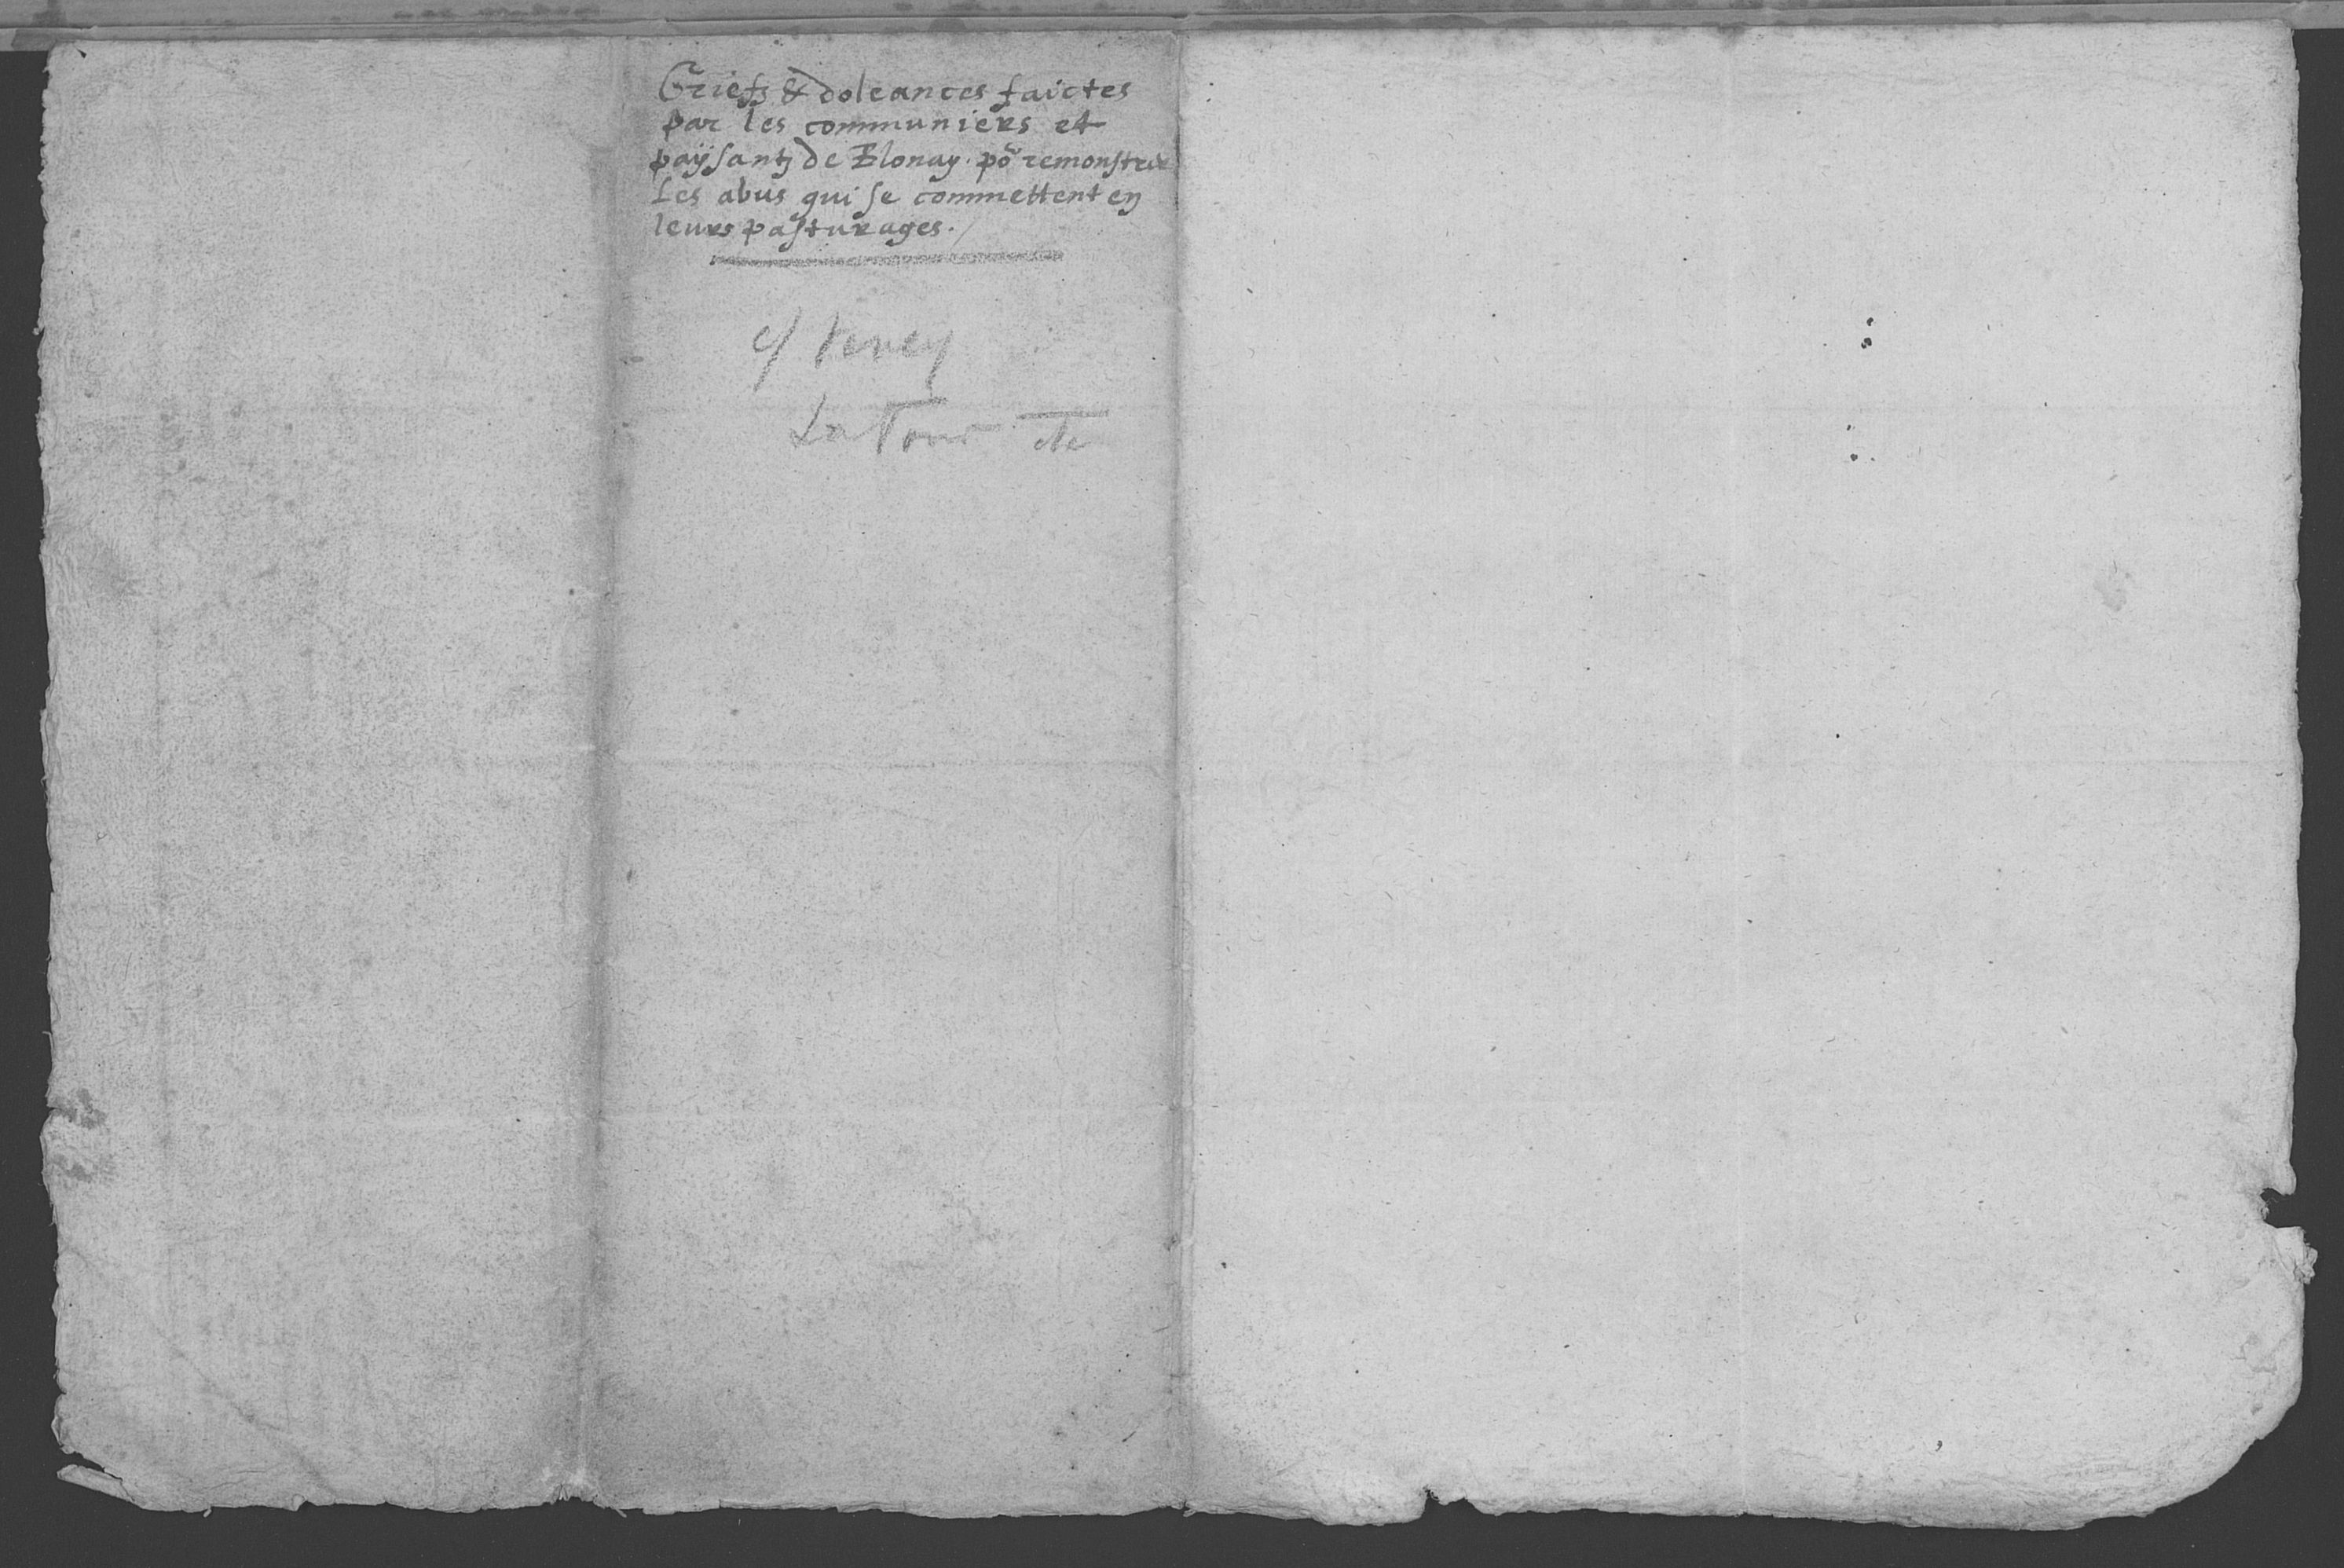 Griefs & doleances faictes
par les communiers et
paÿsantz de Blonay. po᷑ remonstrer
Les abus qui se commettent en
leurs pasturages. /
c/ Vevey
La Tour etc